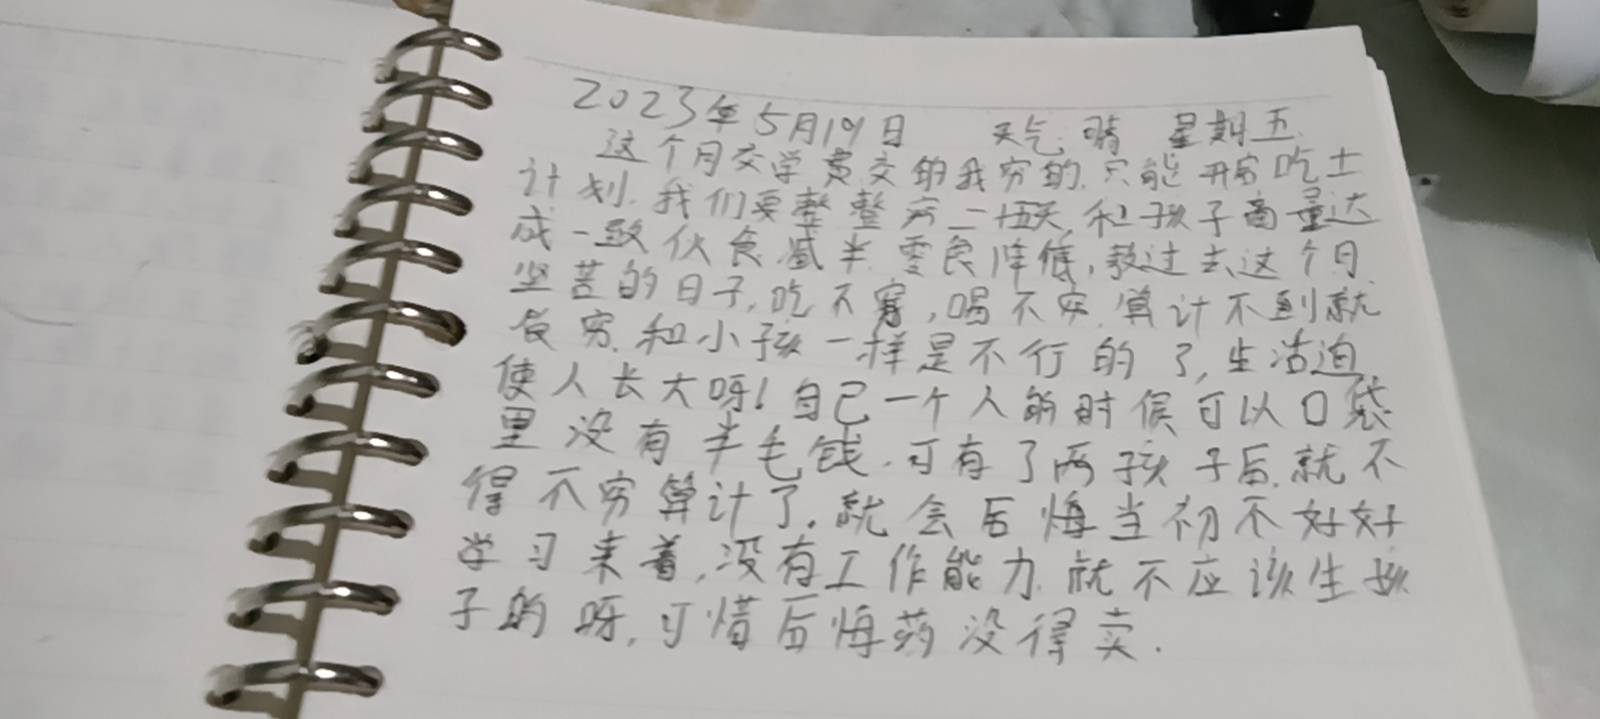 2023年5月19日 天气 晴 星期五
这个月交学费交的我穷的.只能开启吃土
计划.我们要整整穷二十五天,和孩子商量达
成一致伙食减半.零食降低,熬过去这个月
坚苦的日子,吃不穷,喝不穷.算计不到就
会穷.和小孩一样是不行的了,生活迫
使人长大呀!自己一个人的时候可以口袋
里没有半毛钱.可有了两孩子后.就不
得不穷算计了.就会后悔当初不好好
学习来着,没有工作能力.就不应该生孩
子的呀,可惜后悔药没得卖.